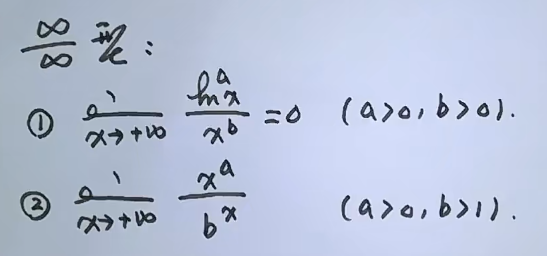 ∞/∞ 型:
① lim x→+∞ ln^a x / x^b = 0 (a>0, b>0).
② lim x→+∞ x^a / b^x (a>0, b>1).